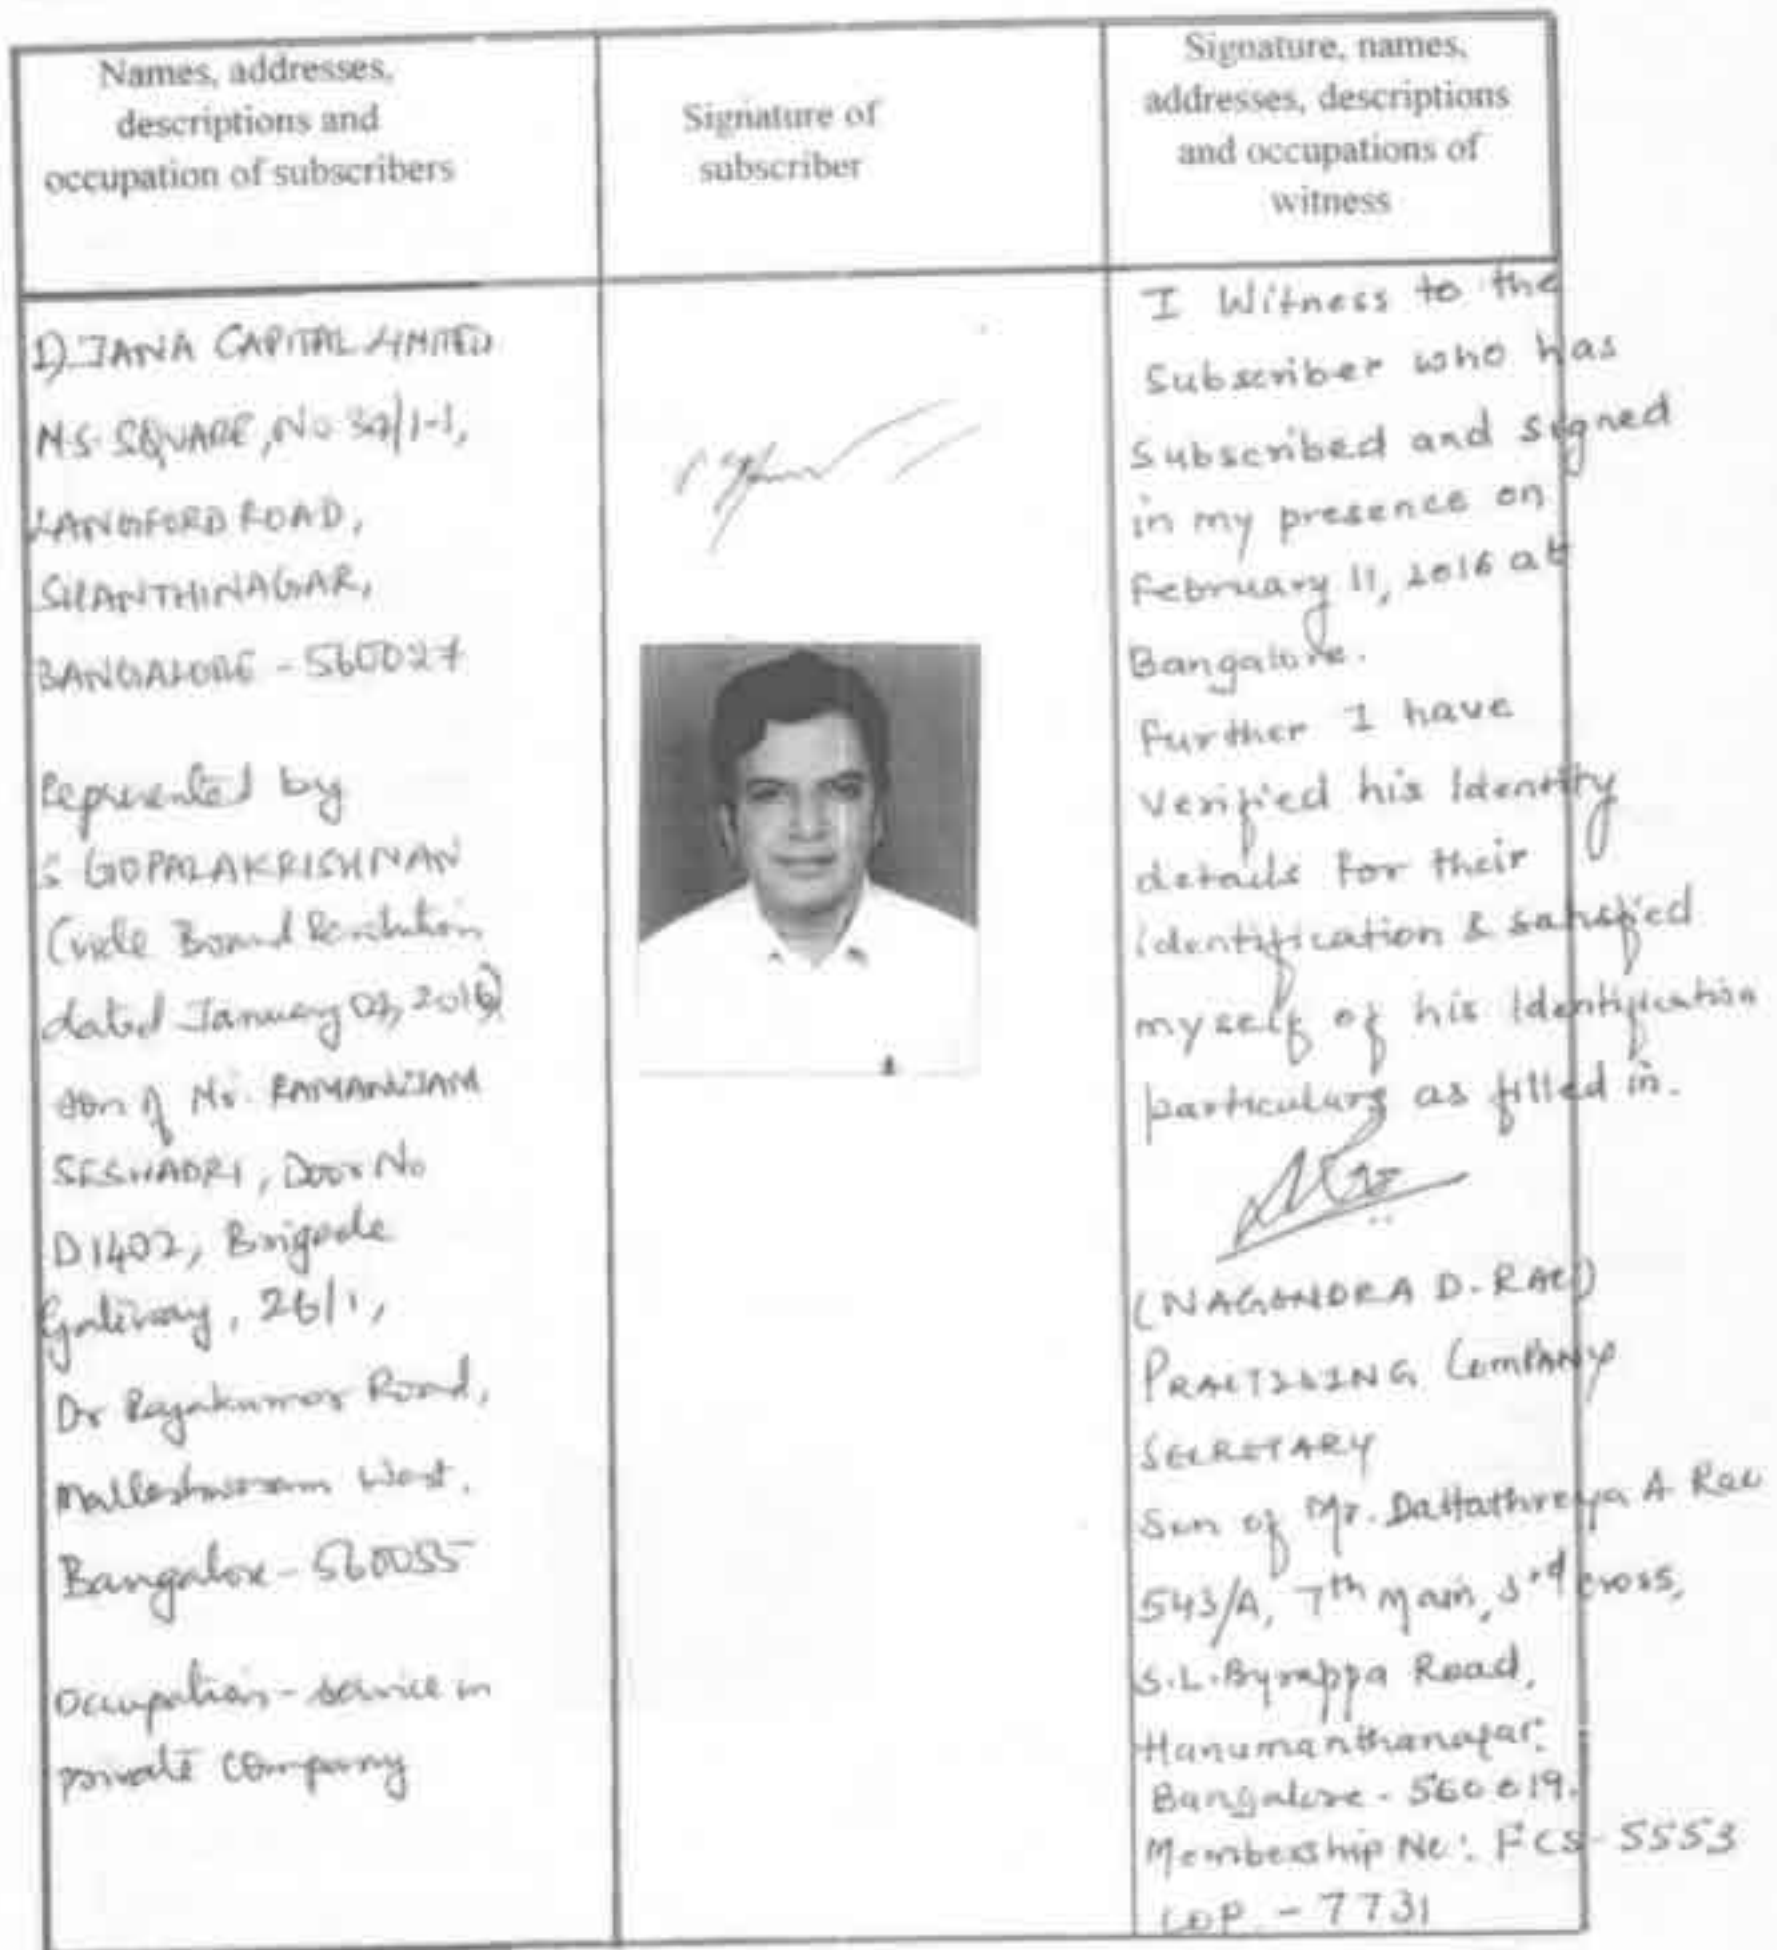 Names, addresses,
descriptions and
occupation of subscribers
Signature of
subscriber
Signature, names,
addresses, descriptions
and occupations of
witness
1) JANA CAPITAL LIMITED
N.S. SQUARE, No 39/1-1,
LANGFORD ROAD,
SHANTHINAGAR,
BANGALORE - 560027
Represented by
S GOPALAKRISHNAN
(vide Board Resolution
dated January 2016)
son of Mr. RAMANUJAM
SESHADRI, Door No
D1402, Brigade
Gateway, 26/1,
Dr Rajakumar Road,
Malleshwaram West,
Bangalore - 560055
Occupation - service in
private company
I Witness to the
Subscriber who has
Subscribed and signed
in my presence on
February 11, 2016 at
Bangalore.
Further I have
Verified his Identity
details for their
identification & satisfied
myself of his Identification
particulars as filled in.
(NAGENDRA D. RAO)
PRACTISING COMPANY
SECRETARY
Son of Mr. Dattathreya A Rao
543/A, 7th Main, 3rd cross,
S.L. Byrappa Road,
Hanumanthanagar.
Bangalore - 560019.
Membership No: FCS - 5553
COP - 7731